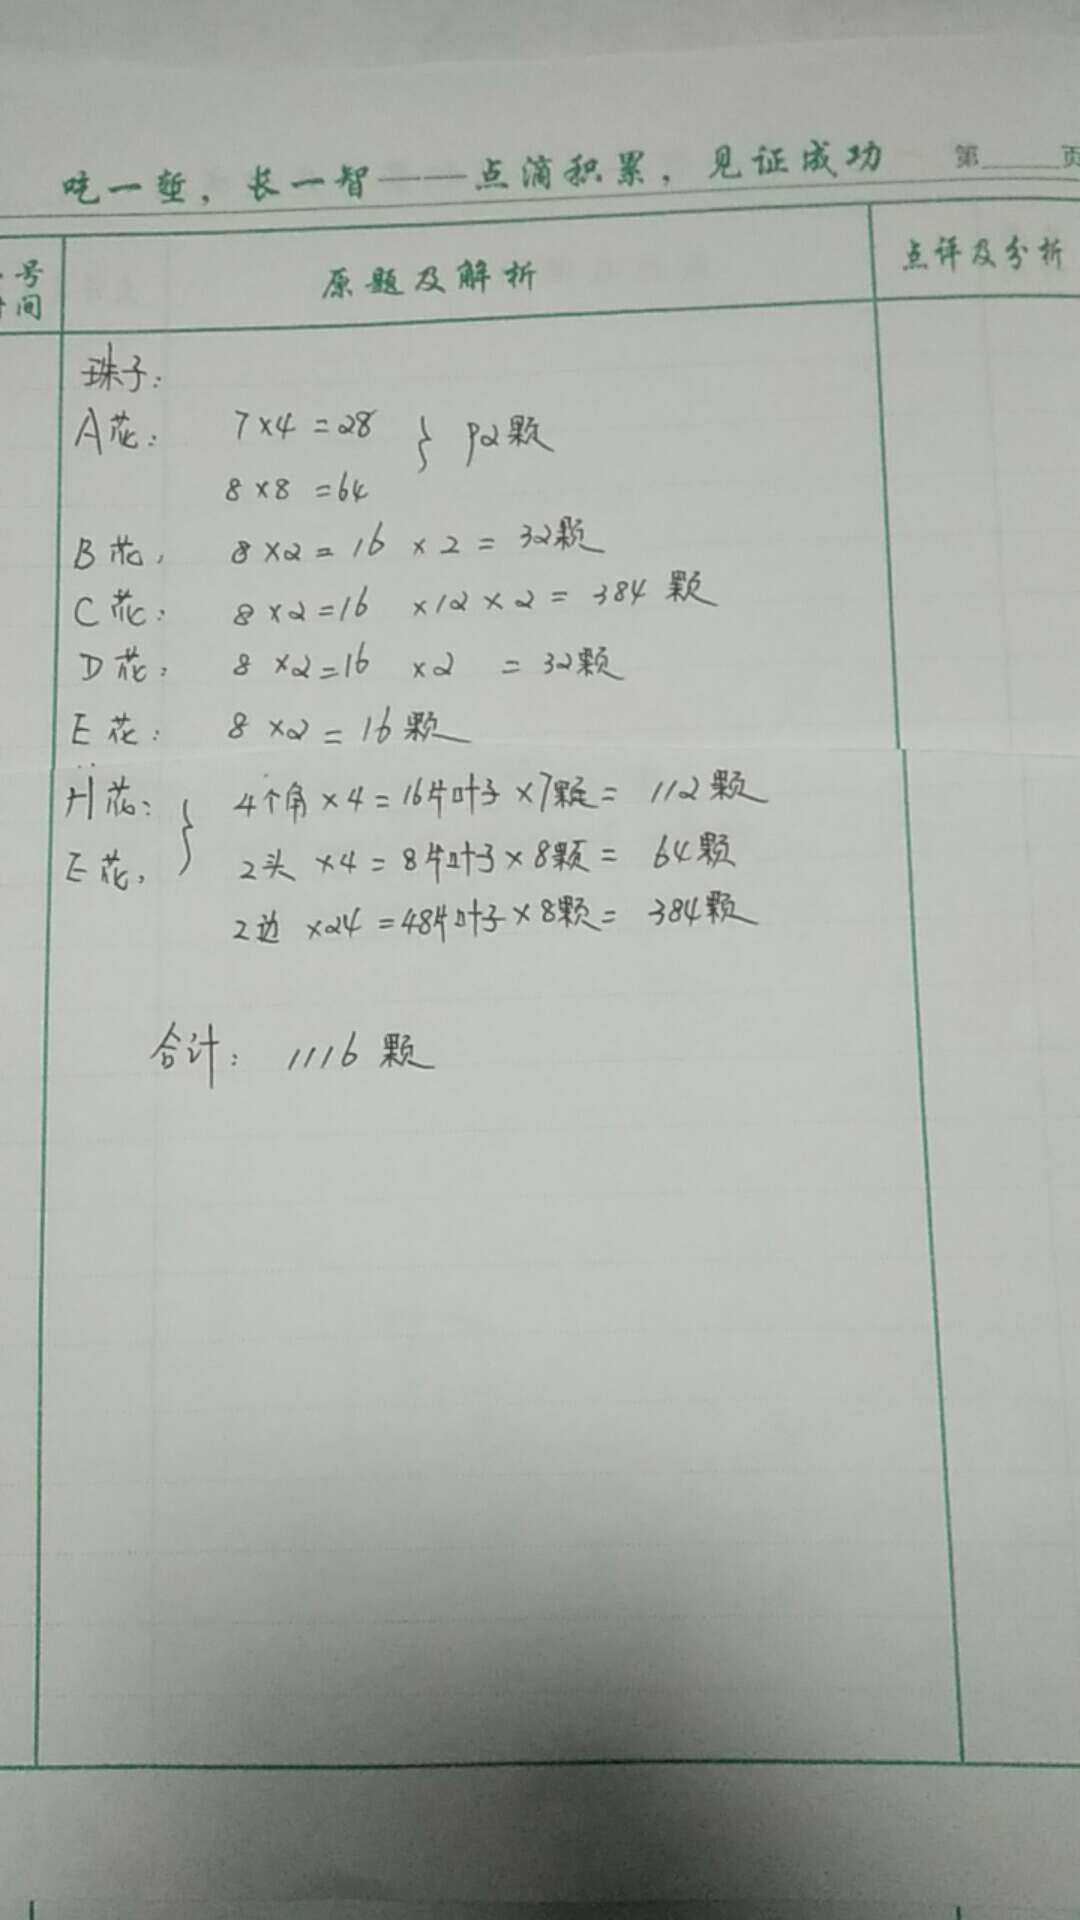 吃一堑，长一智——点滴积累，见证成功 第 页
号
间
原题及解析
点评及分析
珠子：
A花： 7×4=28 } 92颗
8×8=64
B花， 8×2=16 ×2= 32颗
C花： 8×2=16 ×12×2= 384颗
D花： 8×2=16 ×2 =32颗
E花： 8×2=16颗
H花： 4个角×4=16片叶子×7颗= 112颗
E花， 2头×4=8片叶子×8颗= 64颗
2边×24=48片叶子×8颗= 384颗
合计： 1116颗